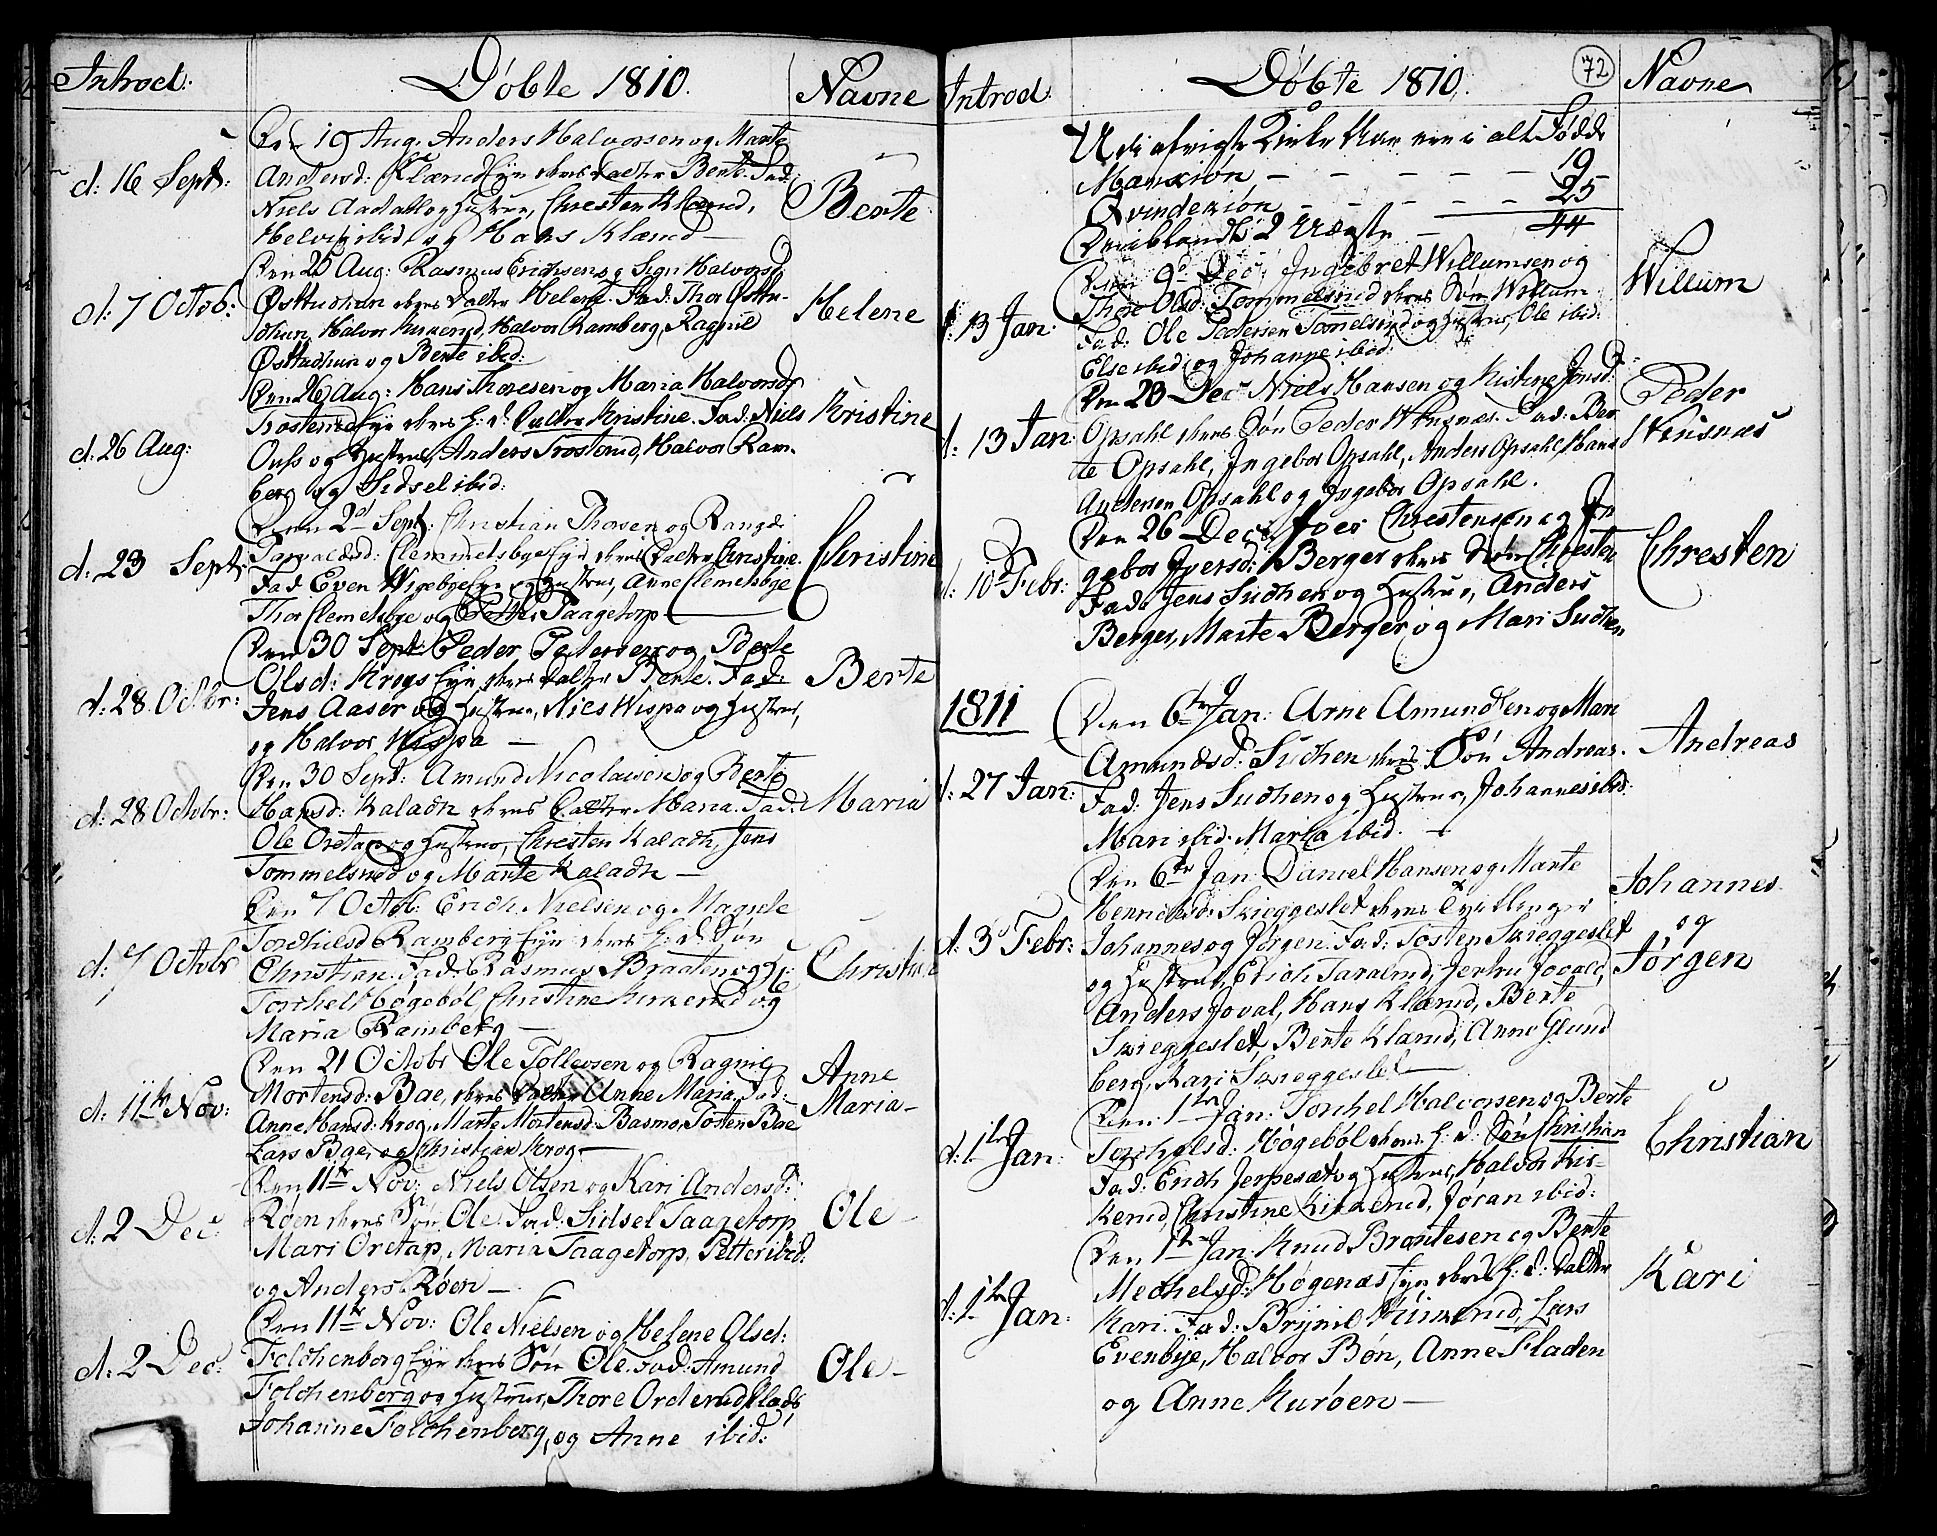 Introd:
Døbte 1810.
Navne
d: 16 Sept:
Den 19 Aug. Anders Halvorsen og Marte
Andersd: Klærud Eyn deres Datter Berte. Fad:
Niels Aadahl og Hustrue, Chresten Klærud,
Helvig ibid. og Hans Klærud —
Berte
d: 7 Octob:
Den 25 Aug: Rasmus Erichsen og Sigri Halvorsd
deres Datter Helene. Fad: Thor
Halvor Kirkerud, Halvor Ramberg, Ragnil
og Berte ibid:
Helene
d: 26 Aug:
Den 26 Aug: Hans Thoresen og Maria Halvorsd
Trosterud Eyn deres h: d: Datter Kristine. Fad: Niels
og Hustrue, Anders Trosterud, Halvor Ram-
berg og Sidsel ibid:
Kristine
d: 23 Sept:
Den 2d Sept: Christian Thorsen og Rangdi
Clemmetsbye Eyn deres Datter Christine.
Fad. Even Wigebye og Hustrue, Anne Clemetsbye
Thor Clemetsbye og Taagetorp —
Christine
d: 28 Octbr:
Den 30 Sept: Peder Pedersen og Berte
Olsd: Krogs Eyn deres Datter Berte. Fad:
Jens Aaser og Hustrue, Niels Wispa og Hustrue,
og Halvor Wispa —
Berte
d: 28 Octobr:
Den 30 Sept: Amund Nicolaisen og Berte
Hansd: Kaladn deres Datter Maria. Fad:
Ole Oretap og Hustrue, Chresten Kaladn, Jens
Tommelsrud og Marte Kaladn —
Maria
d: 7 Octobr
Den 7 Octob: Erich Nielsen og Magnle
Torchilsd Ramberg Eyn deres h: d: Søn
Christian. Fad: Rasmus Braaten og H:
Torchel Høgebøl, Christine Kirkerud og
Maria Ramberg —
Christian
d: 11te Nov:
Den 21 Octobr Ole Tollevsen og Ragnil
Mortensd: Bae, deres Datter Anne Maria, Fad:
Anne Hansd: Krog, Marte Mortensd: Basmo, Tosten Bae
Lars Bae, og Christian Krog —
Anne
Maria —
d: 2 Dec:
Den 11te Nov: Niels Olsen og Kari Andersd:
Røen deres Søn Ole. Fad: Sidsel Taagetorp
Mari Oretap, Maria Taagetorp, Petter ibid:
og Anders Røen —
Ole —
d: 2 Dec:
Den 11te Nov: Ole Nielsen og Helene Olsd:
Folchenborg Eyn deres Søn Ole. Fad: Amund
Folchenborg og Hustrue, Thore Orderud
Johanne Folchenberg, og Anne ibid:
Ole —
Introd:
Døbte 1810.
72
Navne
Udi afvigte Kirke Aar ere i alt Fødde
Mankiøn — — — — — 19 —
Qvindekiøn — — — — 25
Deriblandt 2 Uægte — 44
d: 13 Jan:
Den Dec: Ingebret Willumsen og
Thore Olsd: Tommelsrud deres Søn Willum
Fad: Ole Pedersen Tomelsrud og Hustrue, Ole ibid.
Else ibid: og Johanne ibid:
Willum
d: 13 Jan:
Den 23 Dec: Niels Hansen og Kistine Jonsd:
Opsahl deres Søn Peder Fad: Ber
te Opsahl, Ingebor Opsahl, Anders Opsahl, Hans
Andersen Opsahl og Ingebor Opsahl.
Peder
d: 10 Febr:
Den 26 Dec: Iver Christensen og In
gebor Iversd: Berger deres Søn Chresten
Fad: Jens Sudhen og Hustrue, Anders
Berger, Marte Berger og Mari Sudhen
Chresten
1811
d: 27 Jan:
Den 6te Jan: Arne Amundsen og Mari
Amundsd: Sudhen deres Søn Andreas.
Fad: Jens Sudhen og Hustrue, Johannes ibid:
Mari ibid: Maria ibid. —
Andreas
d: 3 Febr:
Den 6te Jan: Daniel Hansen og Marte
Henrichsd: Skreggeslet deres Tvillinger
Johannes og Jørgen. Fad: Tosten Skreggeslet
og Hustrue, Erich Taralrud, Jertru Joval,
Anders Joval, Hans Klærud, Berte
Skreggeslet, Berte Klærud, Anne Glund
berg, Kari Skreggeslet —
Johannes
og
Jørgen
d: 1te Jan:
Den 1te Jan: Torchel Halvorsen og Berte
Torchelsd: Høgebøl deres h: d: Søn Christian
Fad: Erich Jerpeset og Hustrue, Halvor Kir-
kerud, Christine Kirkerud, Jøran ibid:
Christian
d: 1te Jan:
Den 1te Jan: Knud Brøntesen og Berte
Mechelsd: Høgenæs Eyn deres h: d: Datter
Kari. Fad: Brynil Kirkerud, Lars
Evenbye, Halvor Bøn, Anne Fladen
og Anne Kurøen —
Kari